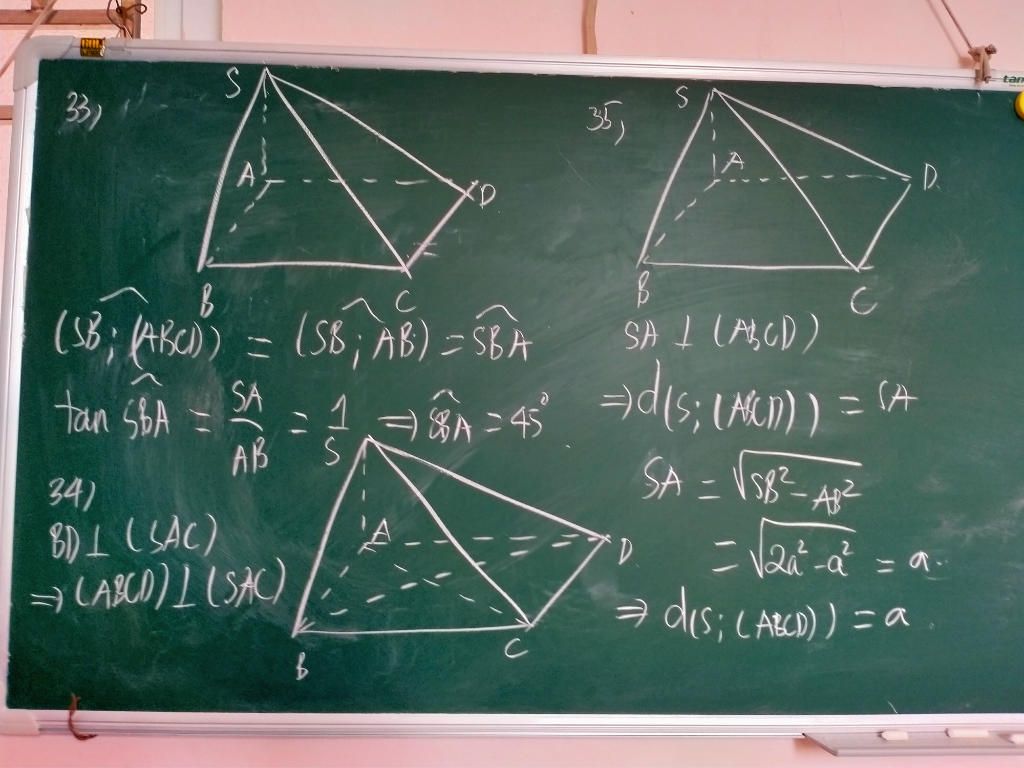 33,
S
A
D
B
C
(SB; (ABCD)) = (SB; AB) = SBA
tan SBA = SA/AB = 1 ⇒ SBA = 45°
34)
BD ⊥ (SAC)
⇒ (ABCD) ⊥ (SAC)
S
A
D
B
C
35,
S
A
D
B
C
SA ⊥ (ABCD)
⇒ d(S; (ABCD)) = SA
SA = √SB² - AB²
= √2a² - a² = a.
⇒ d(S; (ABCD)) = a.